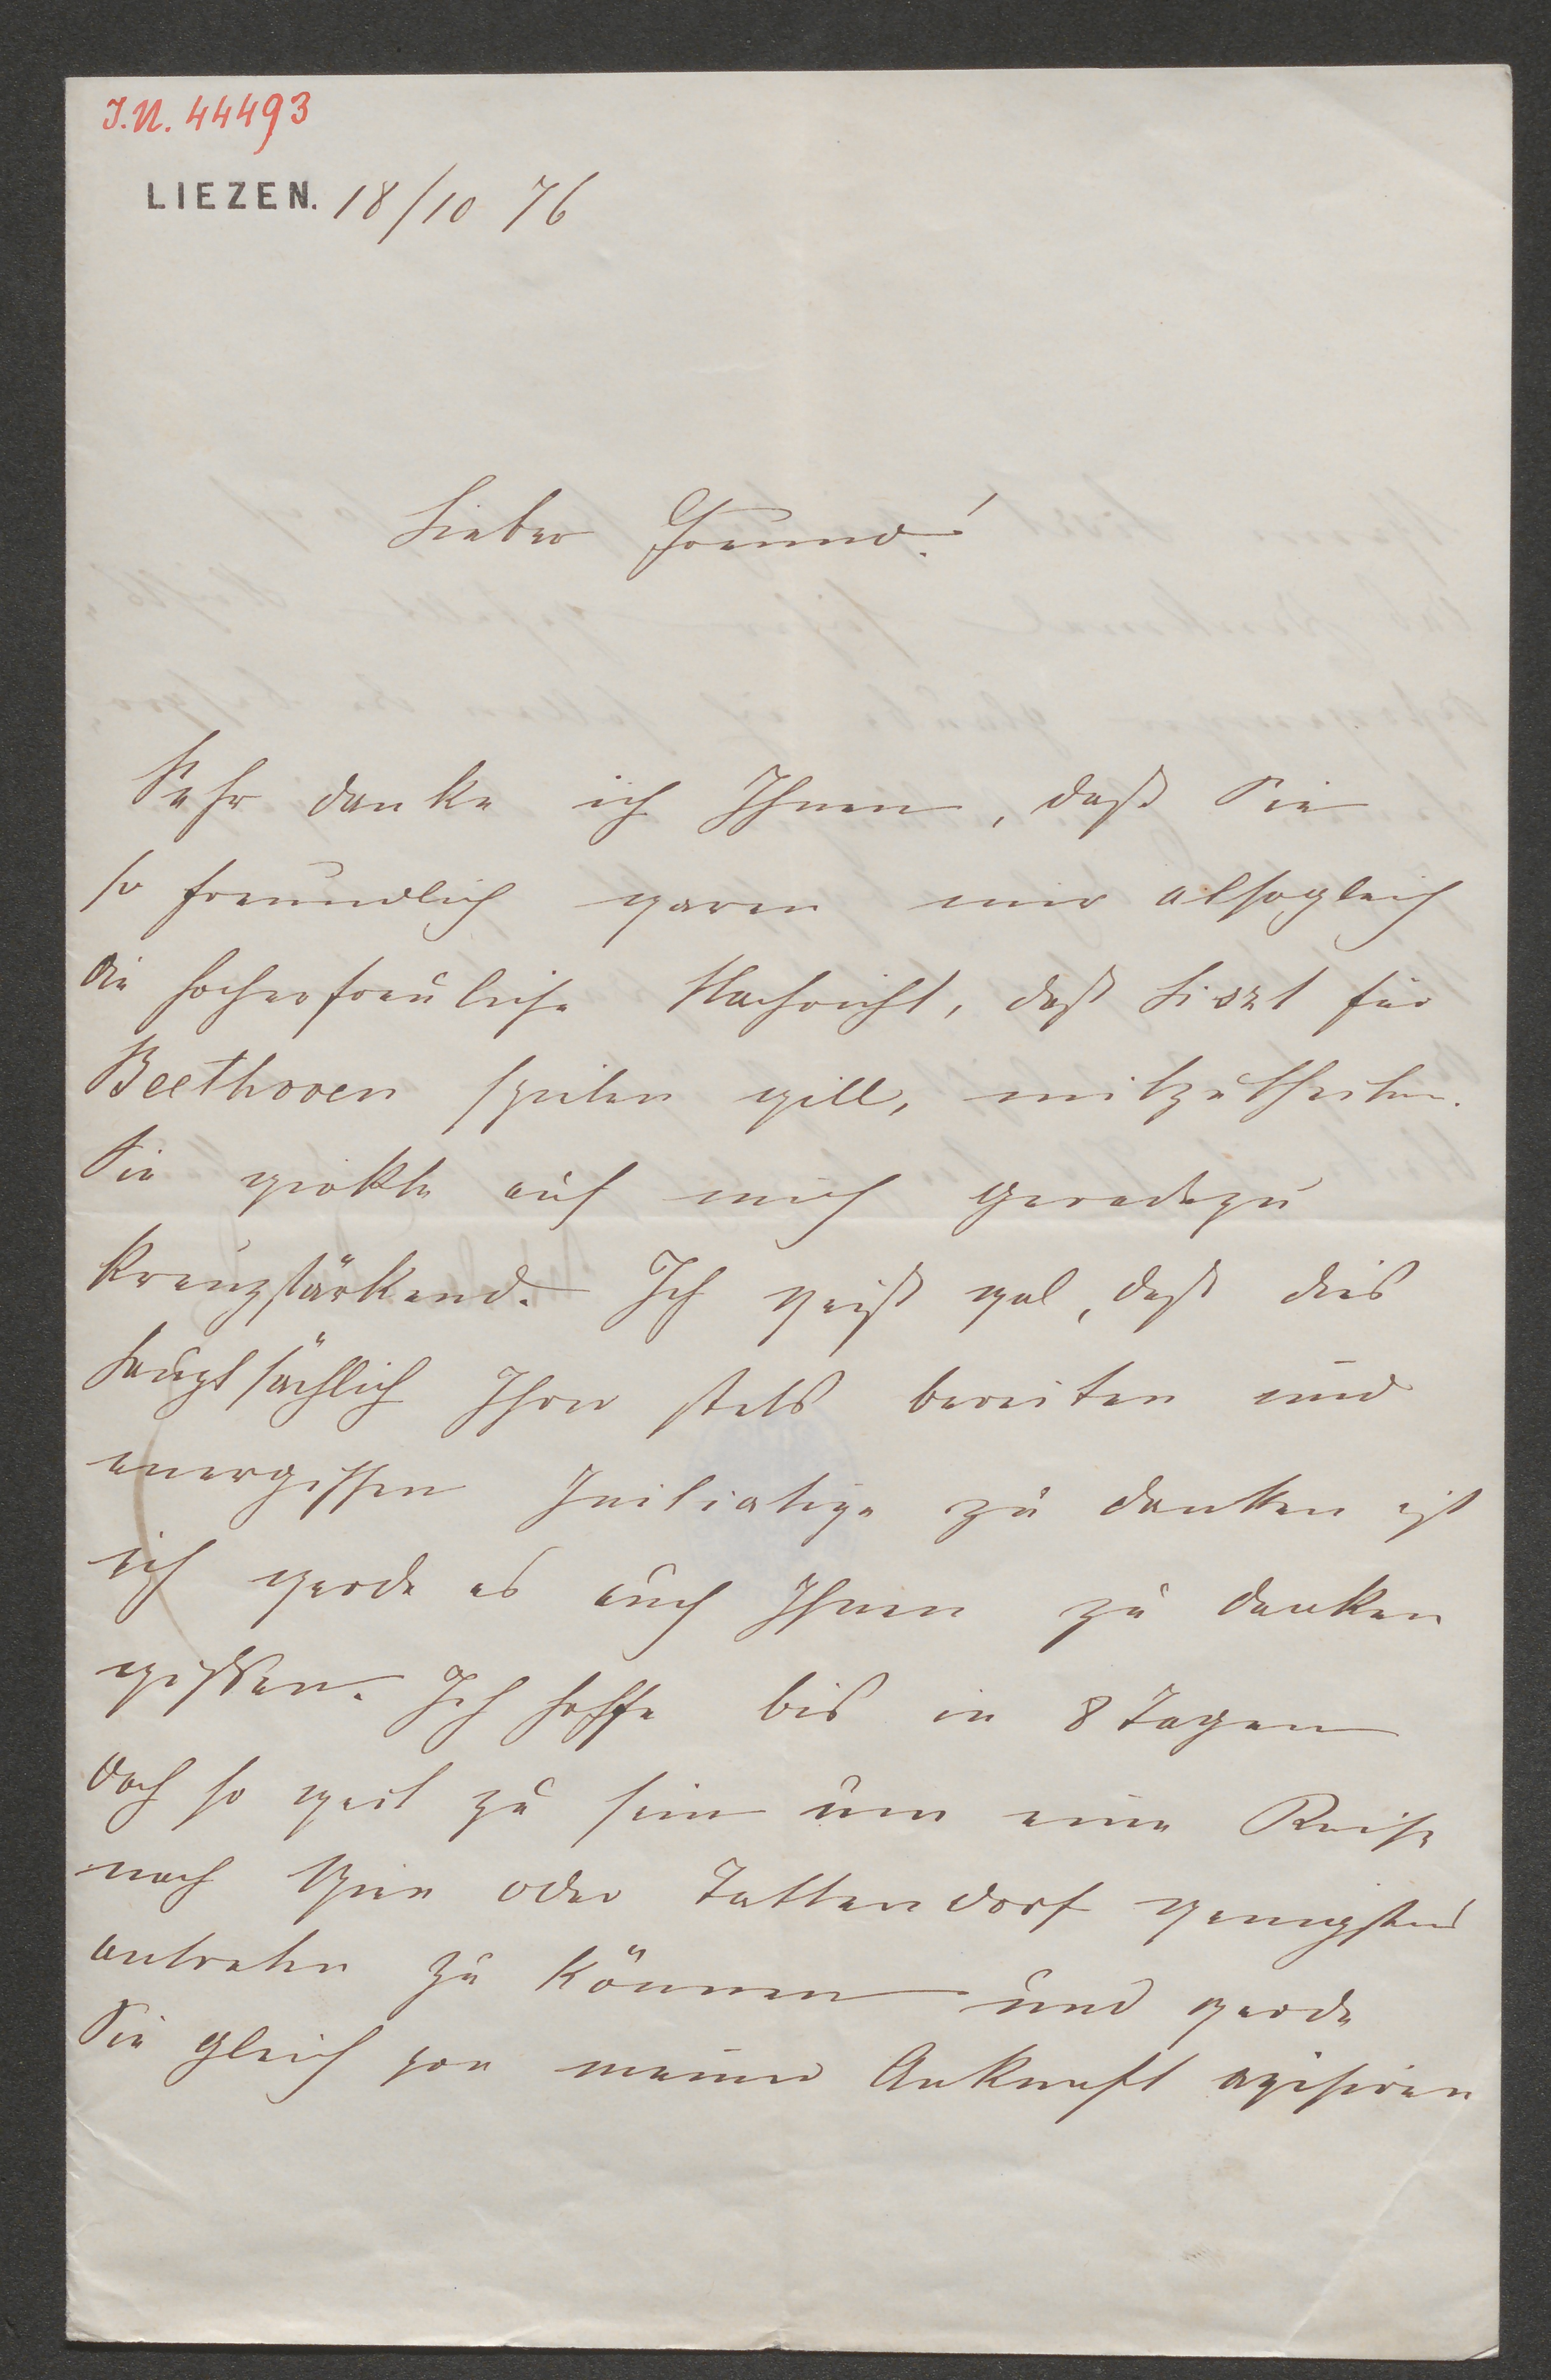 I.N. 44493
LIEZEN. 18/10 76
Lieber Freund!
Sehr danke ich Ihnen, daß Sie
so freundlich waren mir alsogleich
die hocherfreuliche Nachricht, daß Liszt für
Beethoven spielen will, mitzutheilen.
Sie wirkte auf mich geradezu
kreuzstärkend. Ich weiß wol, daß dies
hauptsächlich Ihrer stets bereiten und
energischen Initiative zu danken ist
ich werde es auch Ihnen zu danken
wissen. Ich hoffe bis in 8 Tagen
doch so weit zu sein um eine Reise
nach Wien oder Tattendorf wenigstens
antreten zu können und werde
Sie gleich von meiner Ankunft avisiren